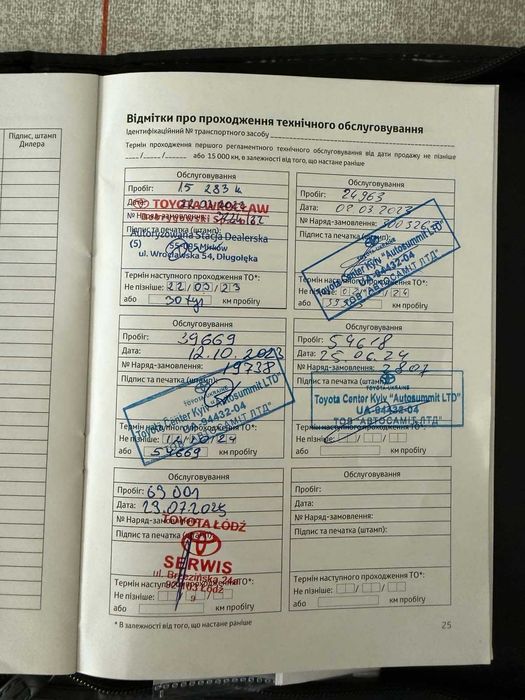 Підпис, штамп
Дилера
Відмітки про проходження технічного обслуговування
Ідентифікаційний № транспортного засобу
Термін проходження першого регламентного технічного обслуговування від дати продажу не пізніше
___/___/___ або 15 000 км, в залежності від того, що настане раніше
Обслуговування
Пробіг: 15 283 к
Дата:
TOYOTA WROCŁAW
№ Наряд-замовлення:
Dobrygowski Sp.
Підпис та печатка (штамп):
Autoryzowana Stacja Dealerska
(5) 55-095 Mirków
ul. Wrocławska 54, Długołęka
Термін наступного проходження ТО*:
Не пізніше: 22/03/23
або 30 км пробігу
Обслуговування
Пробіг: 24963
Дата: 02.03.2023
№ Наряд-замовлення:
Підпис та печатка (штамп):
TOYOTA-UKRAINE
Toyota Center Kyiv "Autosummit LTD"
UA-94432-04
ТОВ "АВТОСАМІТ ЛТД"
Термін наступного проходження ТО*:
Не пізніше: 24
або км пробігу
Обслуговування
Пробіг: 39669
Дата: 12.10.2023
№ Наряд-замовлення: 19738
Підпис та печатка (штамп):
TOYOTA-UKRAINE
Toyota Center Kyiv "Autosummit LTD"
UA-94432-04
ТОВ "АВТОСАМІТ ЛТД"
Термін наступного проходження ТО*:
Не пізніше: 24
або 54669 км пробігу
Обслуговування
Пробіг: 54618
Дата: 25.06.24
№ Наряд-замовлення: 2807
Підпис та печатка (штамп):
TOYOTA-UKRAINE
Toyota Center Kyiv "Autosummit LTD"
UA-94432-04
ТОВ "АВТОСАМІТ ЛТД"
Термін наступного проходження ТО*:
Не пізніше:
або км пробігу
Обслуговування
Пробіг: 69 001
Дата: 29.07.2025
№ Наряд-замовлення:
TOYOTA ŁÓDŹ
Підпис та печатка (штамп):
SERWIS
ul. Brzezińska 24a
92-103 Łódź
9
Термін наступного проходження ТО*:
Не пізніше:
або км пробігу
Обслуговування
Пробіг:
Дата:
№ Наряд-замовлення:
Підпис та печатка (штамп):
Термін наступного проходження ТО*:
Не пізніше:
або км пробігу
* В залежності від того, що настане раніше
25